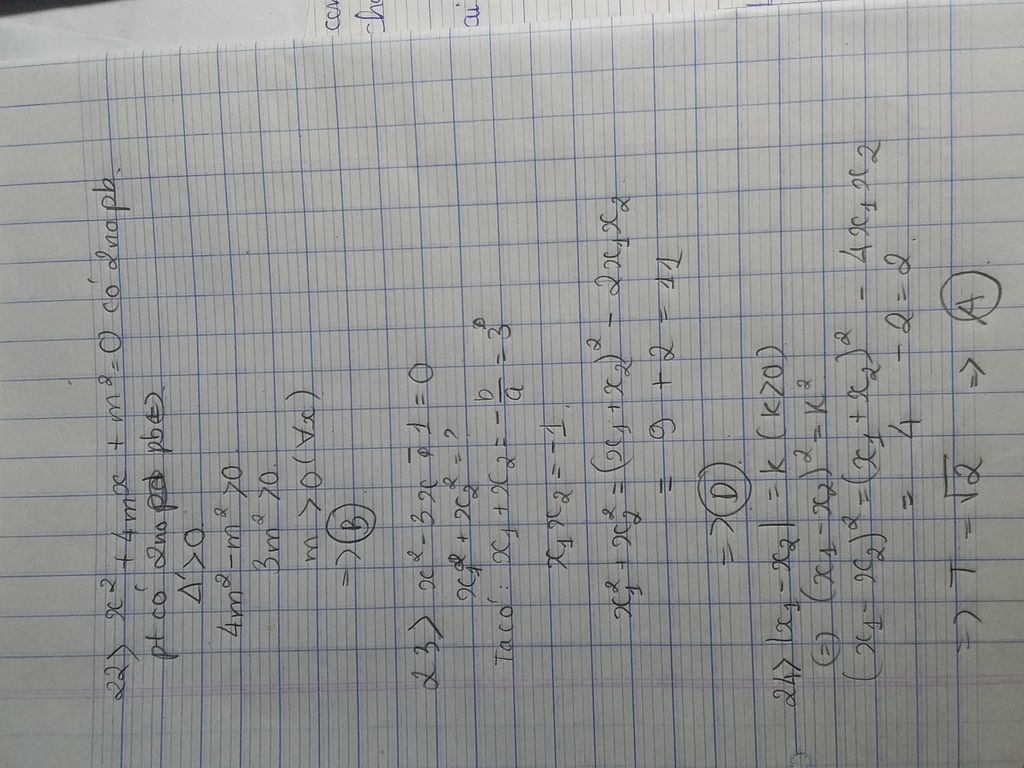 22> x² + 4mx + m² = 0 có 2no pb.
pt có 2no pb (=)
Δ' > 0
4m² - m² > 0
3m² > 0
m > 0 (∀x)
=> B
23> x² - 3x - 1 = 0
x₁² + x₂² = ?
Ta có: x₁ + x₂ = -b/a = 3
x₁x₂ = -1
x₁² + x₂² = (x₁ + x₂)² - 2x₁x₂
= 9 + 2 = 11
=> D
24> |x₁ - x₂| = k (k > 0)
(=) (x₁ - x₂)² = k²
(x₁ - x₂)² = (x₁ + x₂)² - 4x₁x₂
= 4 - 2 = 2
=> T = √2 => A